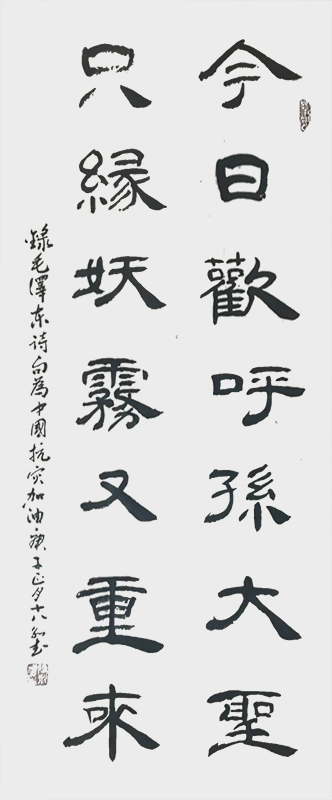 今日歡呼孫大聖
只緣妖霧又重來
錄毛澤东诗句為中國抗灾加油庚子正月十八